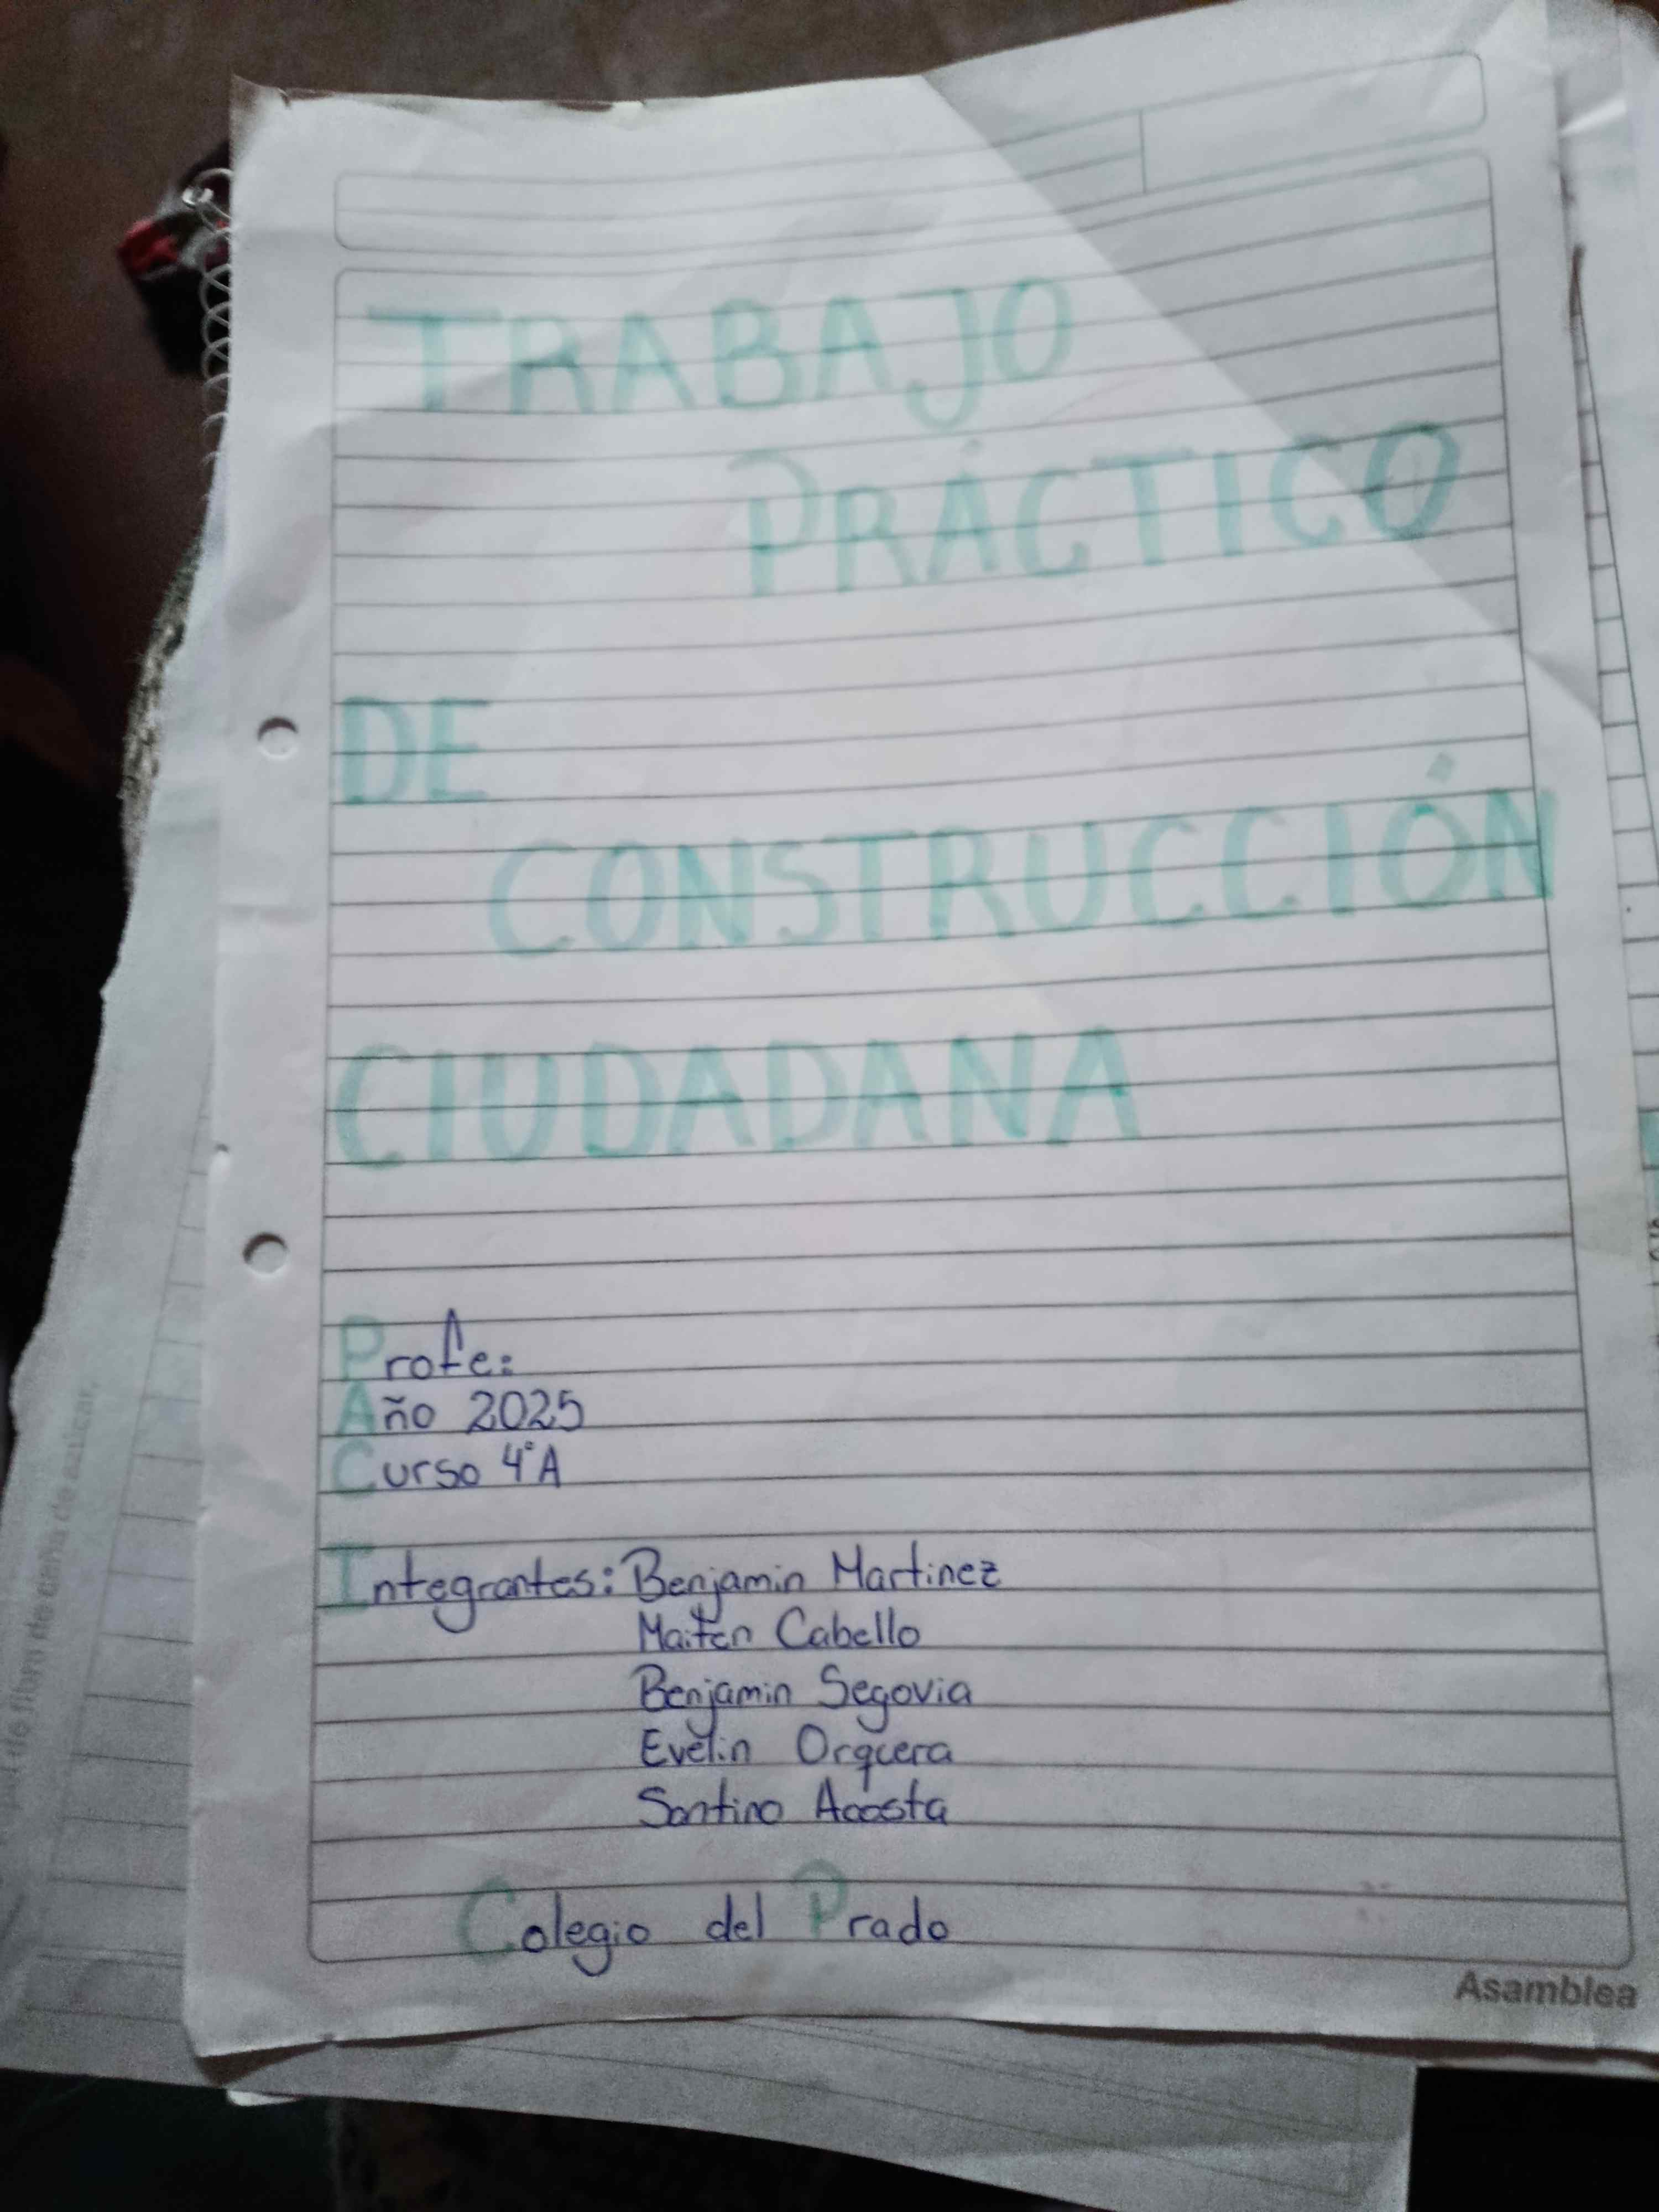 TRABAJO
PRÁCTICO
DE
CONSTRUCCIÓN
CIUDADANA
Profe:
Año 2025
Curso 4°A
Integrantes: Benjamin Martinez
Maiten Cabello
Benjamin Segovia
Evelin Orquera
Santino Acosta
Colegio del Prado
Asamblea